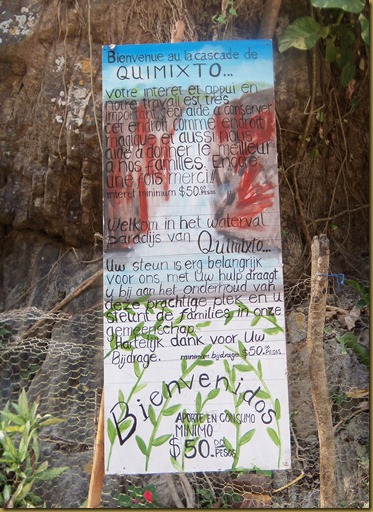 Bienvenue au la cascade de
QUIMIXTO...
votre interet et appui en
notre travail est tres
important
cet endroit comme endroit
magique et aussi nous
aide a donner le meilleur
a nos familles. Encore
une fois merci!!
interet minimum $50.00 Pesos
Welkom in het waterval
paradijs van Quimixto...
Uw steun is erg belangrijk
voor ons, met Uw hulp draagt
u bij aan het onderhoud van
deze prachtige plek en u
steunt de families in onze
gemeenschap.
Hartelijk dank voor Uw
Bijdrage. minimum bijdrage $50.00 Pesos
Bienvenidos
APORTE EN CONSUMO
MINIMO
$50.00
Pesos